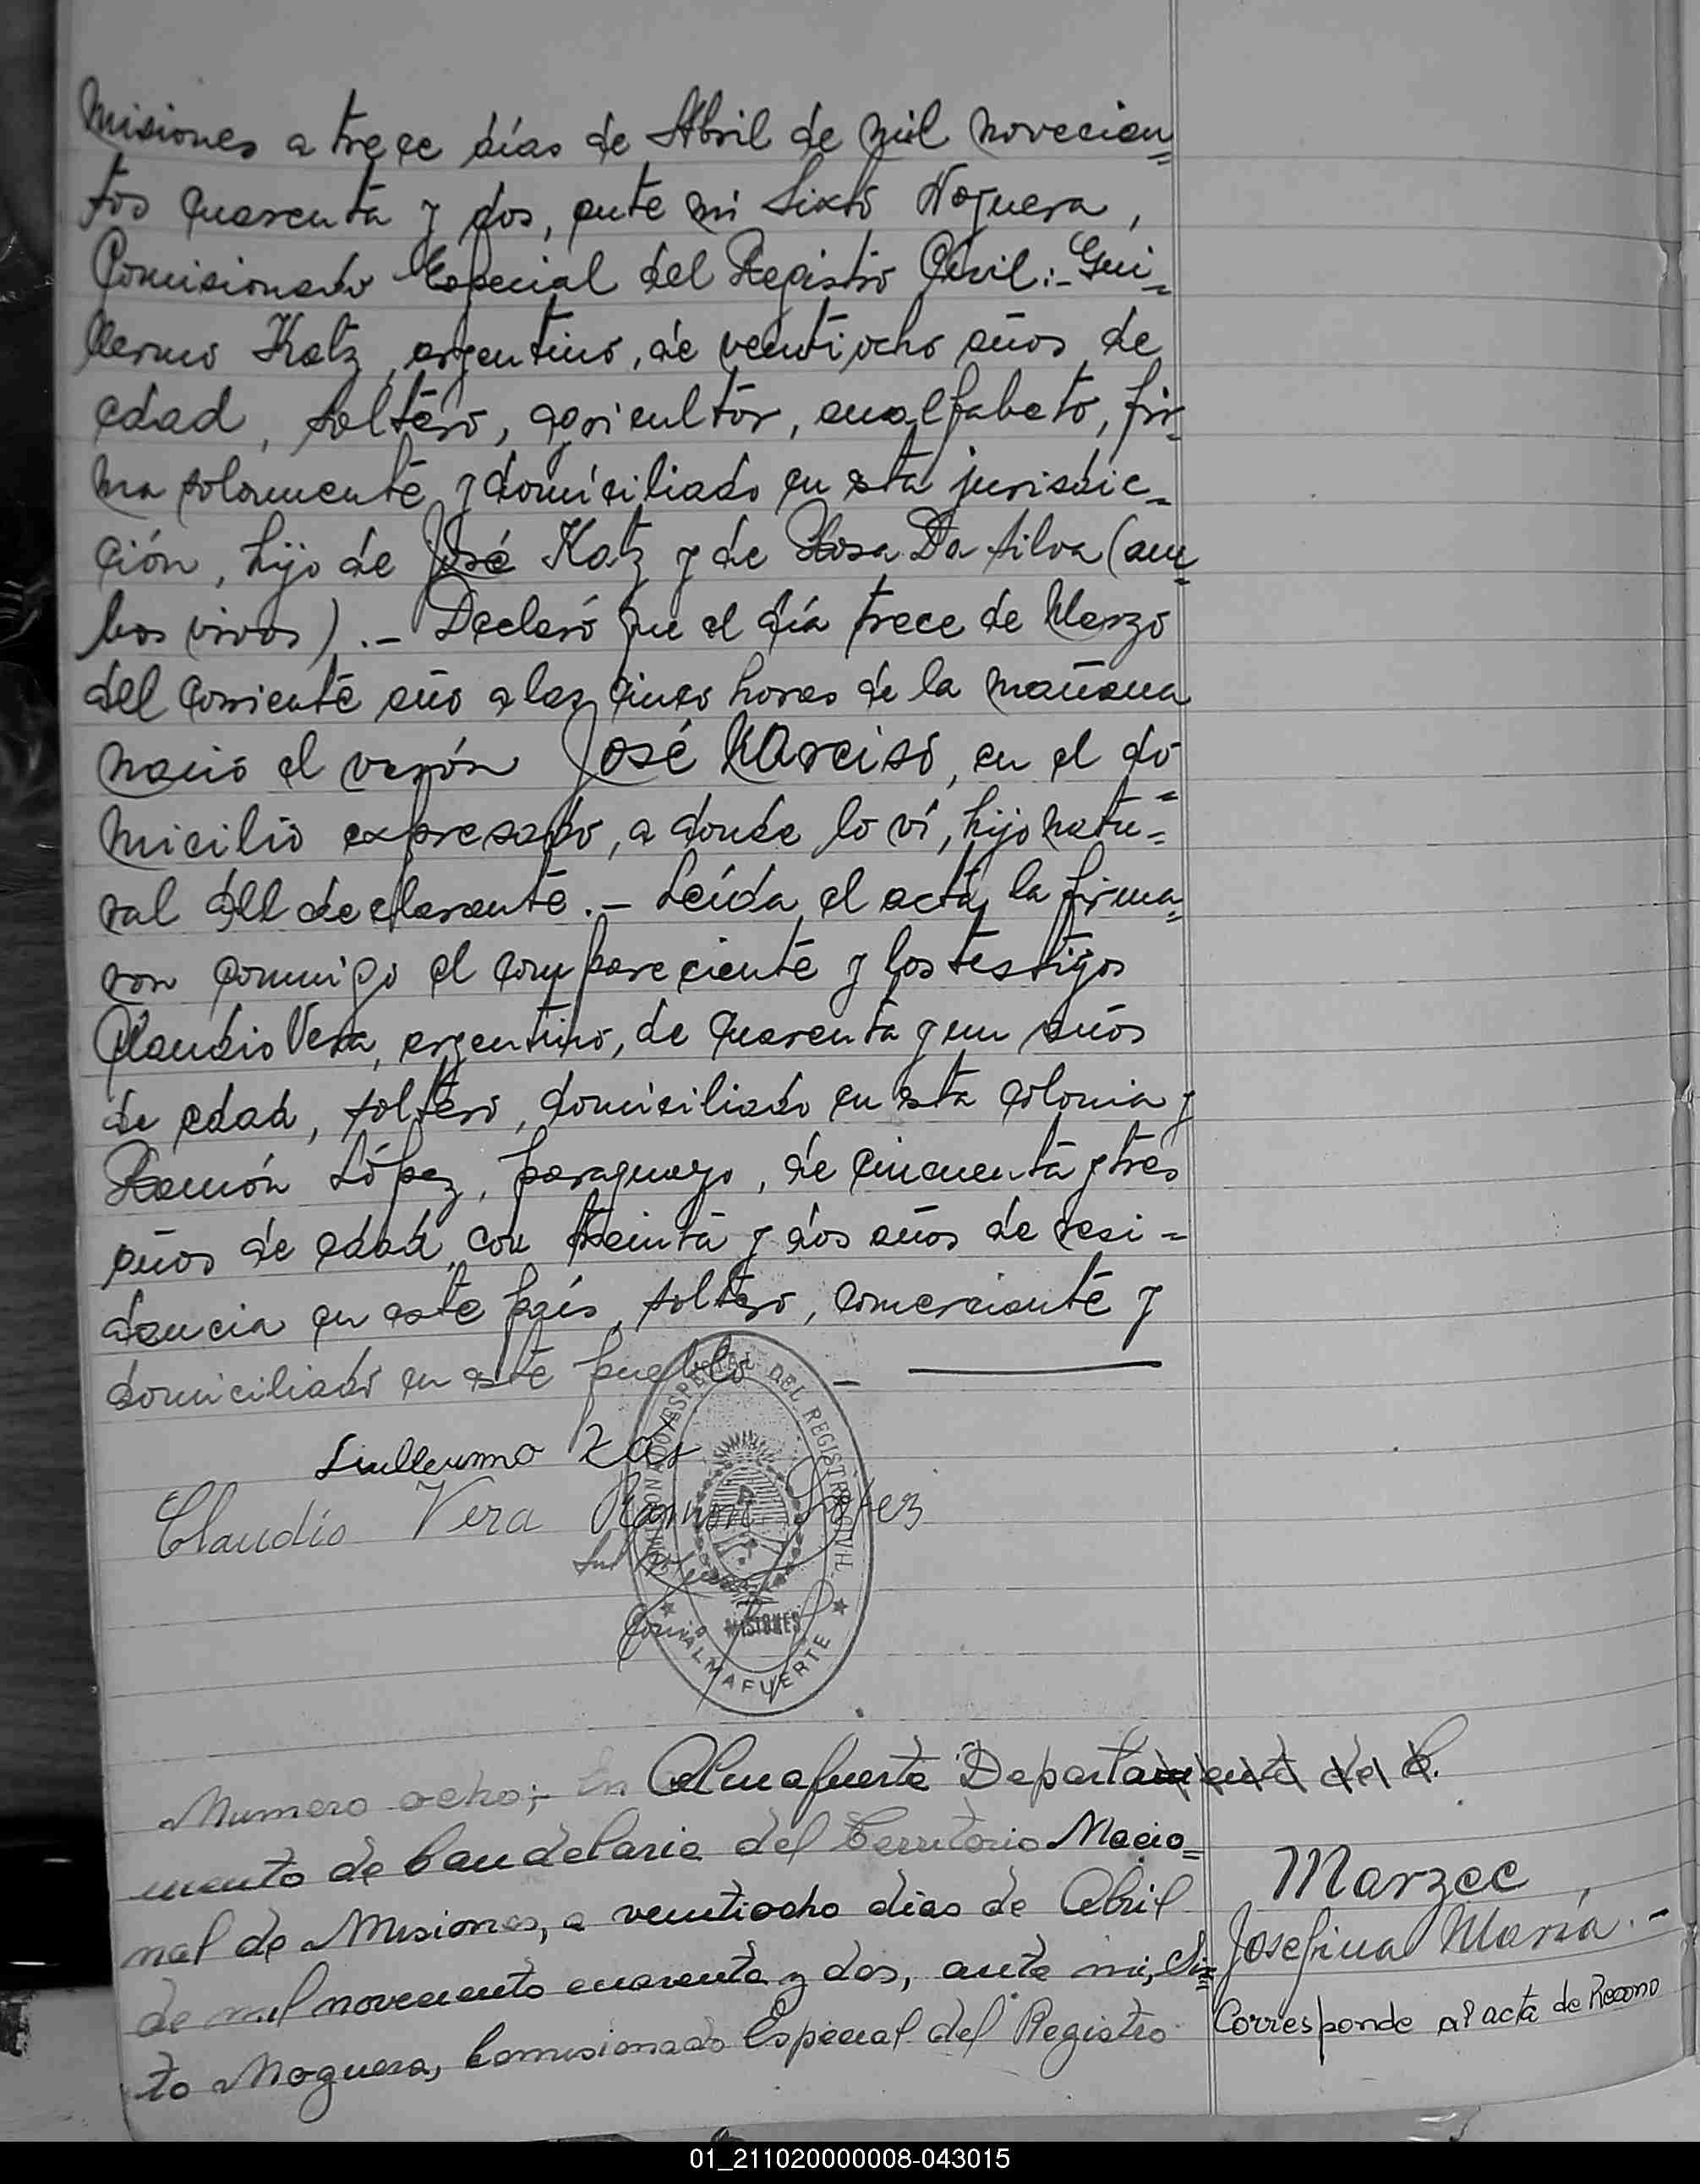 Misiones a trece días de Abril de mil novecien=
tos cuarenta y dos, ante mi Sixto Noguera,
Comisionado Especial del Registro Civil:- Gui=
llermo Katz, argentino, de veintiocho años de
edad, soltero, agricultor, analfabeto, fir=
ma solamente y domiciliado en esta jurisdic=
ción, hijo de José Katz y de Rosa Da Silva (am=
bos vivos).- Declaró que el día trece de Marzo
del corriente año a las cinco horas de la mañana
nació el varón José Narciso, en el do=
micilio expresado, a donde lo ví, hijo natu=
ral del declarante.- Leída el acta, la firma=
ron conmigo el compareciente y los testigos
Claudio Vera, argentino, de cuarenta y un años
de edad, soltero, domiciliado en esta colonia y
Ramón López, paraguayo, de cincuenta y tres
años de edad, con treinta y dos años de resi=
dencia en este país, soltero, comerciante y
domiciliado en este pueblo —
Guillermo Kas
Claudio Vera Ramon Lopez
ESPECIAL DEL REGISTRO CIVIL
MISIONES
ALMAFUERTE
Numero ocho;- En Almafuerte Departamento del C.
mento de Candelaria del Territorio Nacio=
nal de Misiones, a veintiocho dias de Abril
de mil novecento cuarenta y dos, ante mi, Six=
to Noguera, Comisionado Especial del Registro
Marzec,
Josefina María.-
Corresponde al acta de Recono
01_211020000008-043015